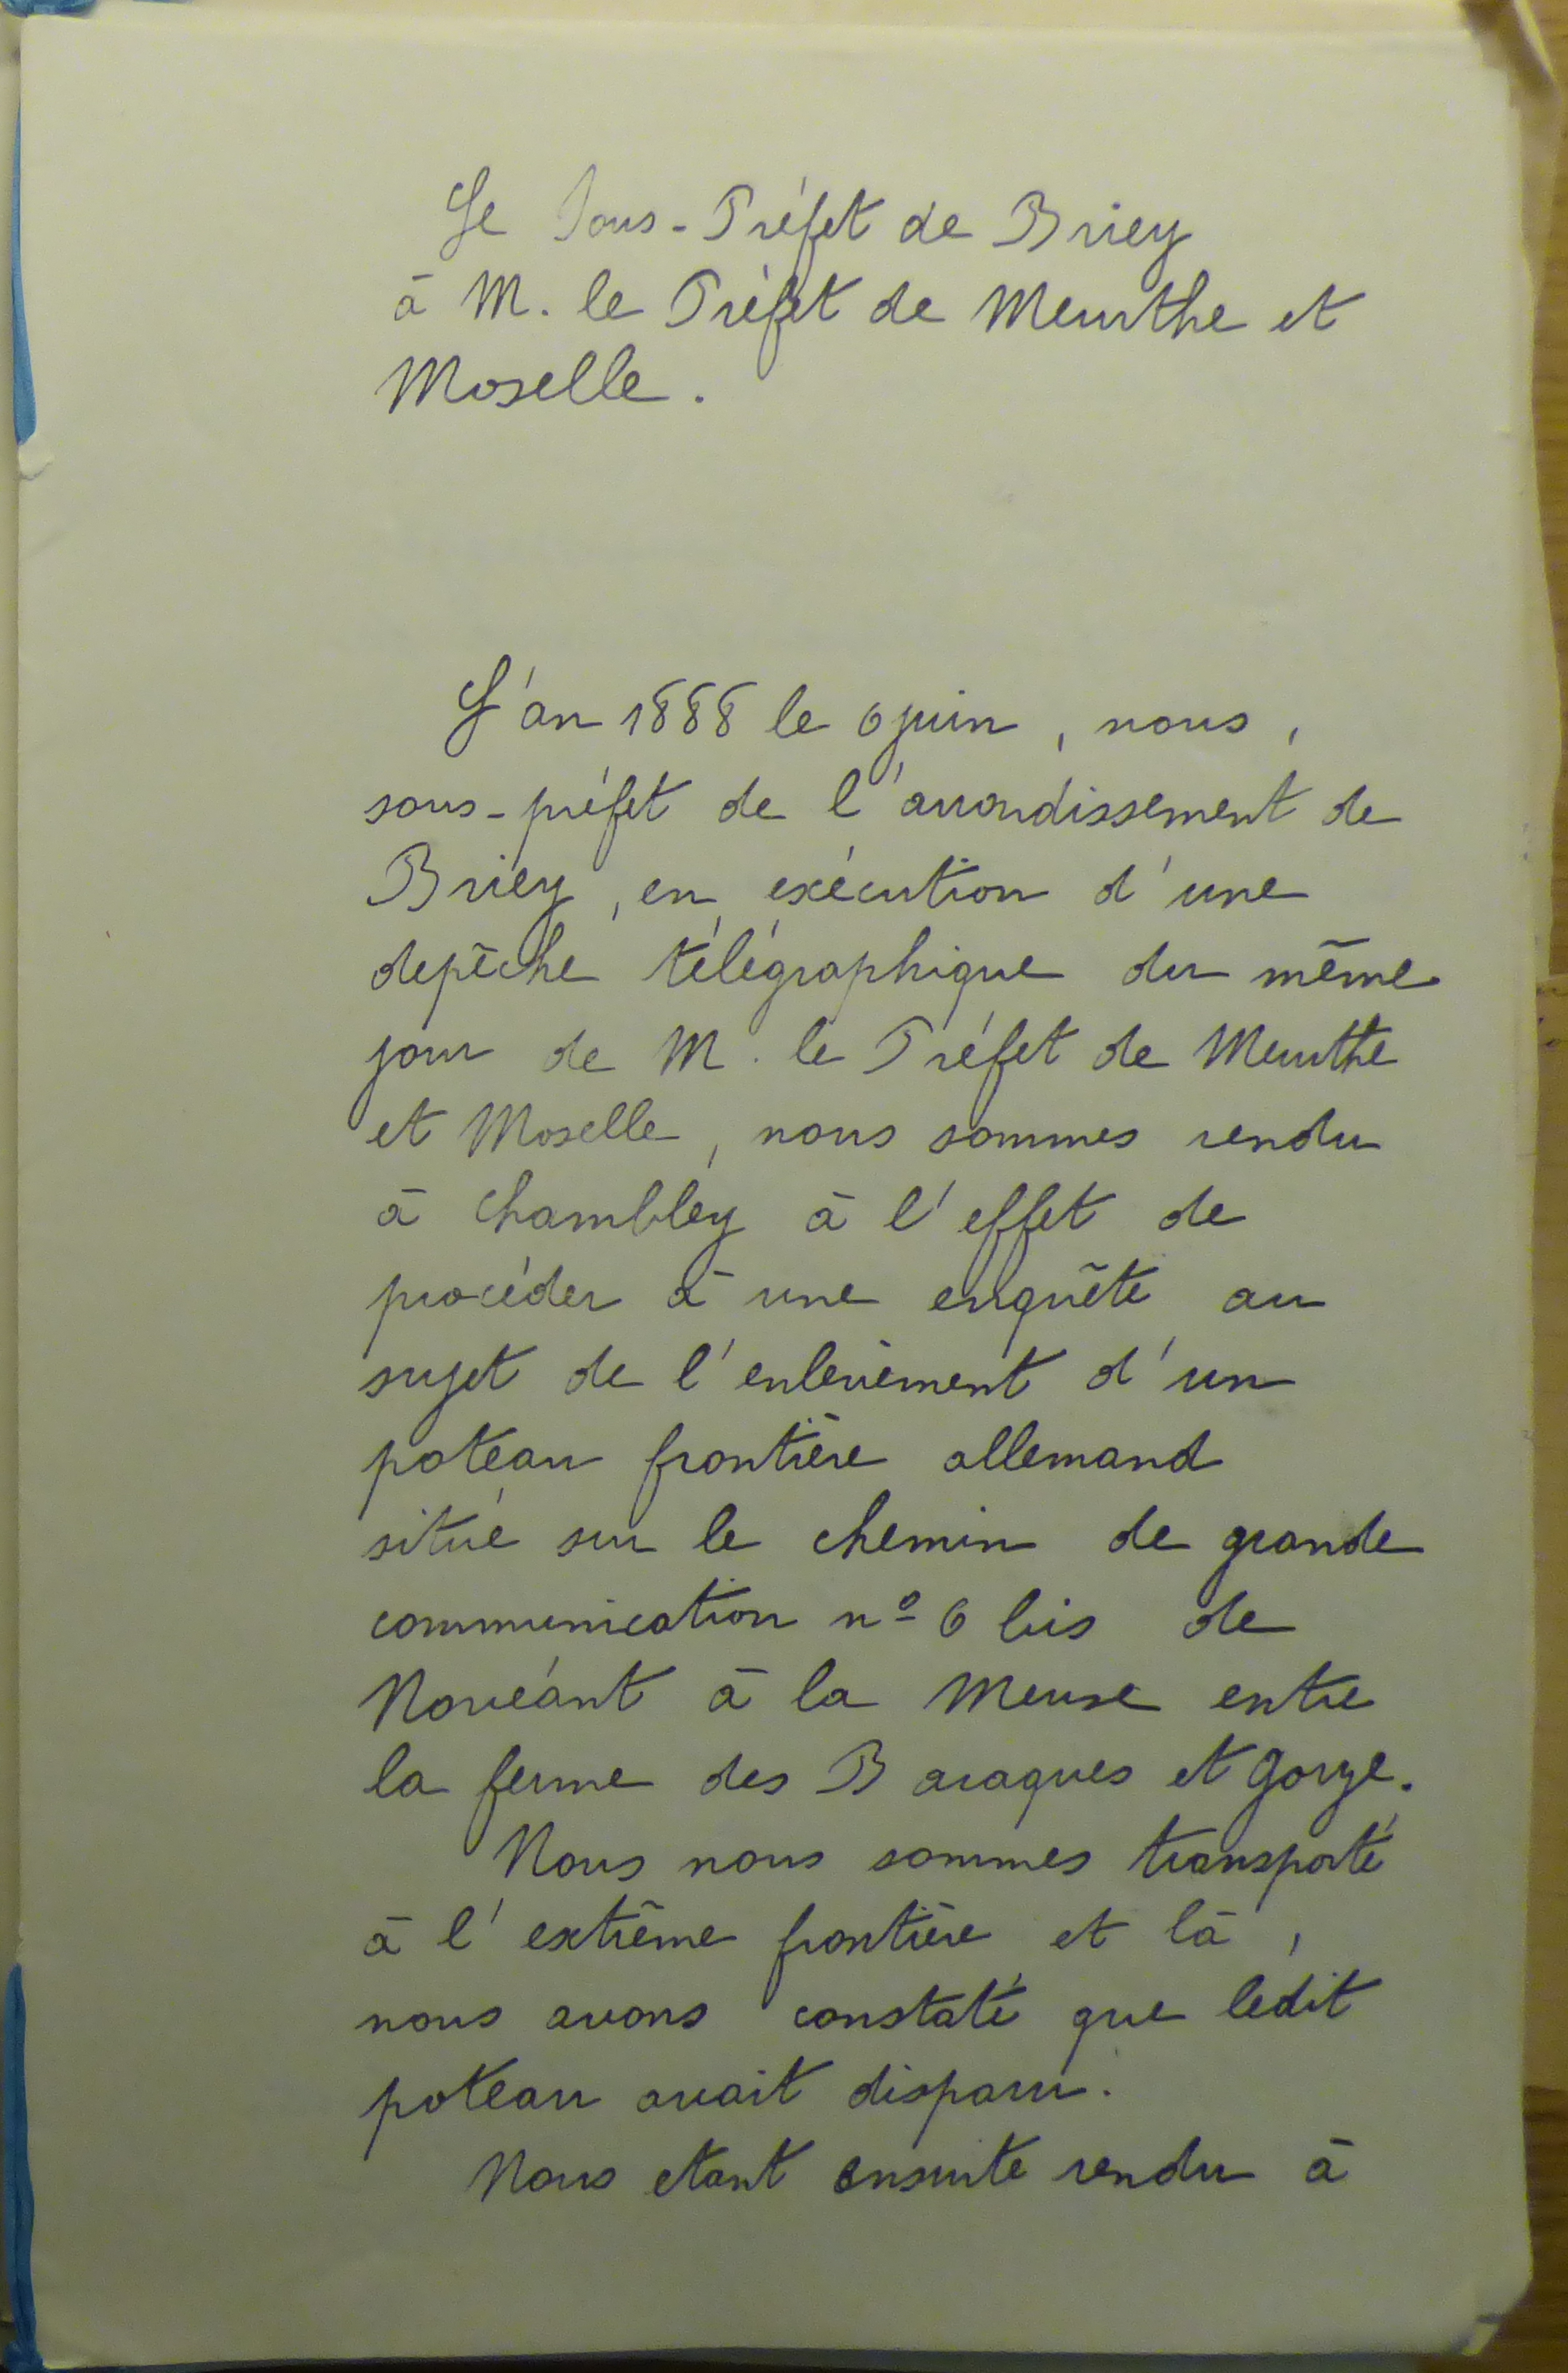 Le Sous-Préfet de Briey
à M. le Préfet de Meurthe et
Moselle.
L'an 1888 le 6 juin, nous,
sous-préfet de l'arrondissement de
Briey, en exécution d'une
depêche télégraphique du même
jour de M. le Préfet de Meurthe
et Moselle, nous sommes rendu
à Chambley à l'effet de
procéder à une enquête au
sujet de l'enlèvement d'un
poteau frontière allemand
situé sur le chemin de grande
communication nº 6 bis de
Novéant à la Meuse entre
la ferme des Baraques et Gorze.
Nous nous sommes transporté
à l'extrême frontière et là,
nous avons constaté que ledit
poteau avait disparu.
Nous etant ensuite rendu à